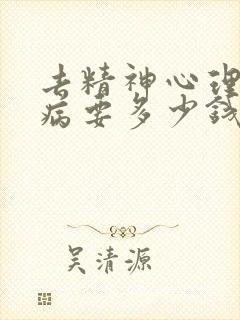 去精神心理
病要多少钱
吴清源